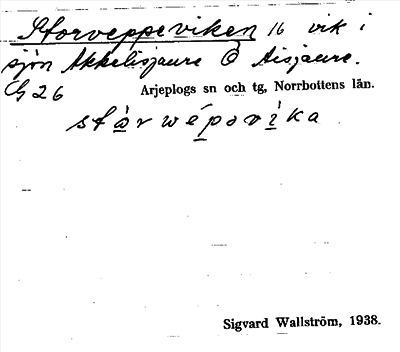 Storveppeviken 16 vik i
sjön Akkelisjaure Ö Aisjaure.
G 26 Arjeplogs sn och tg, Norrbottens län.
stàrwépəvìka
Sigvard Wallström, 1938.